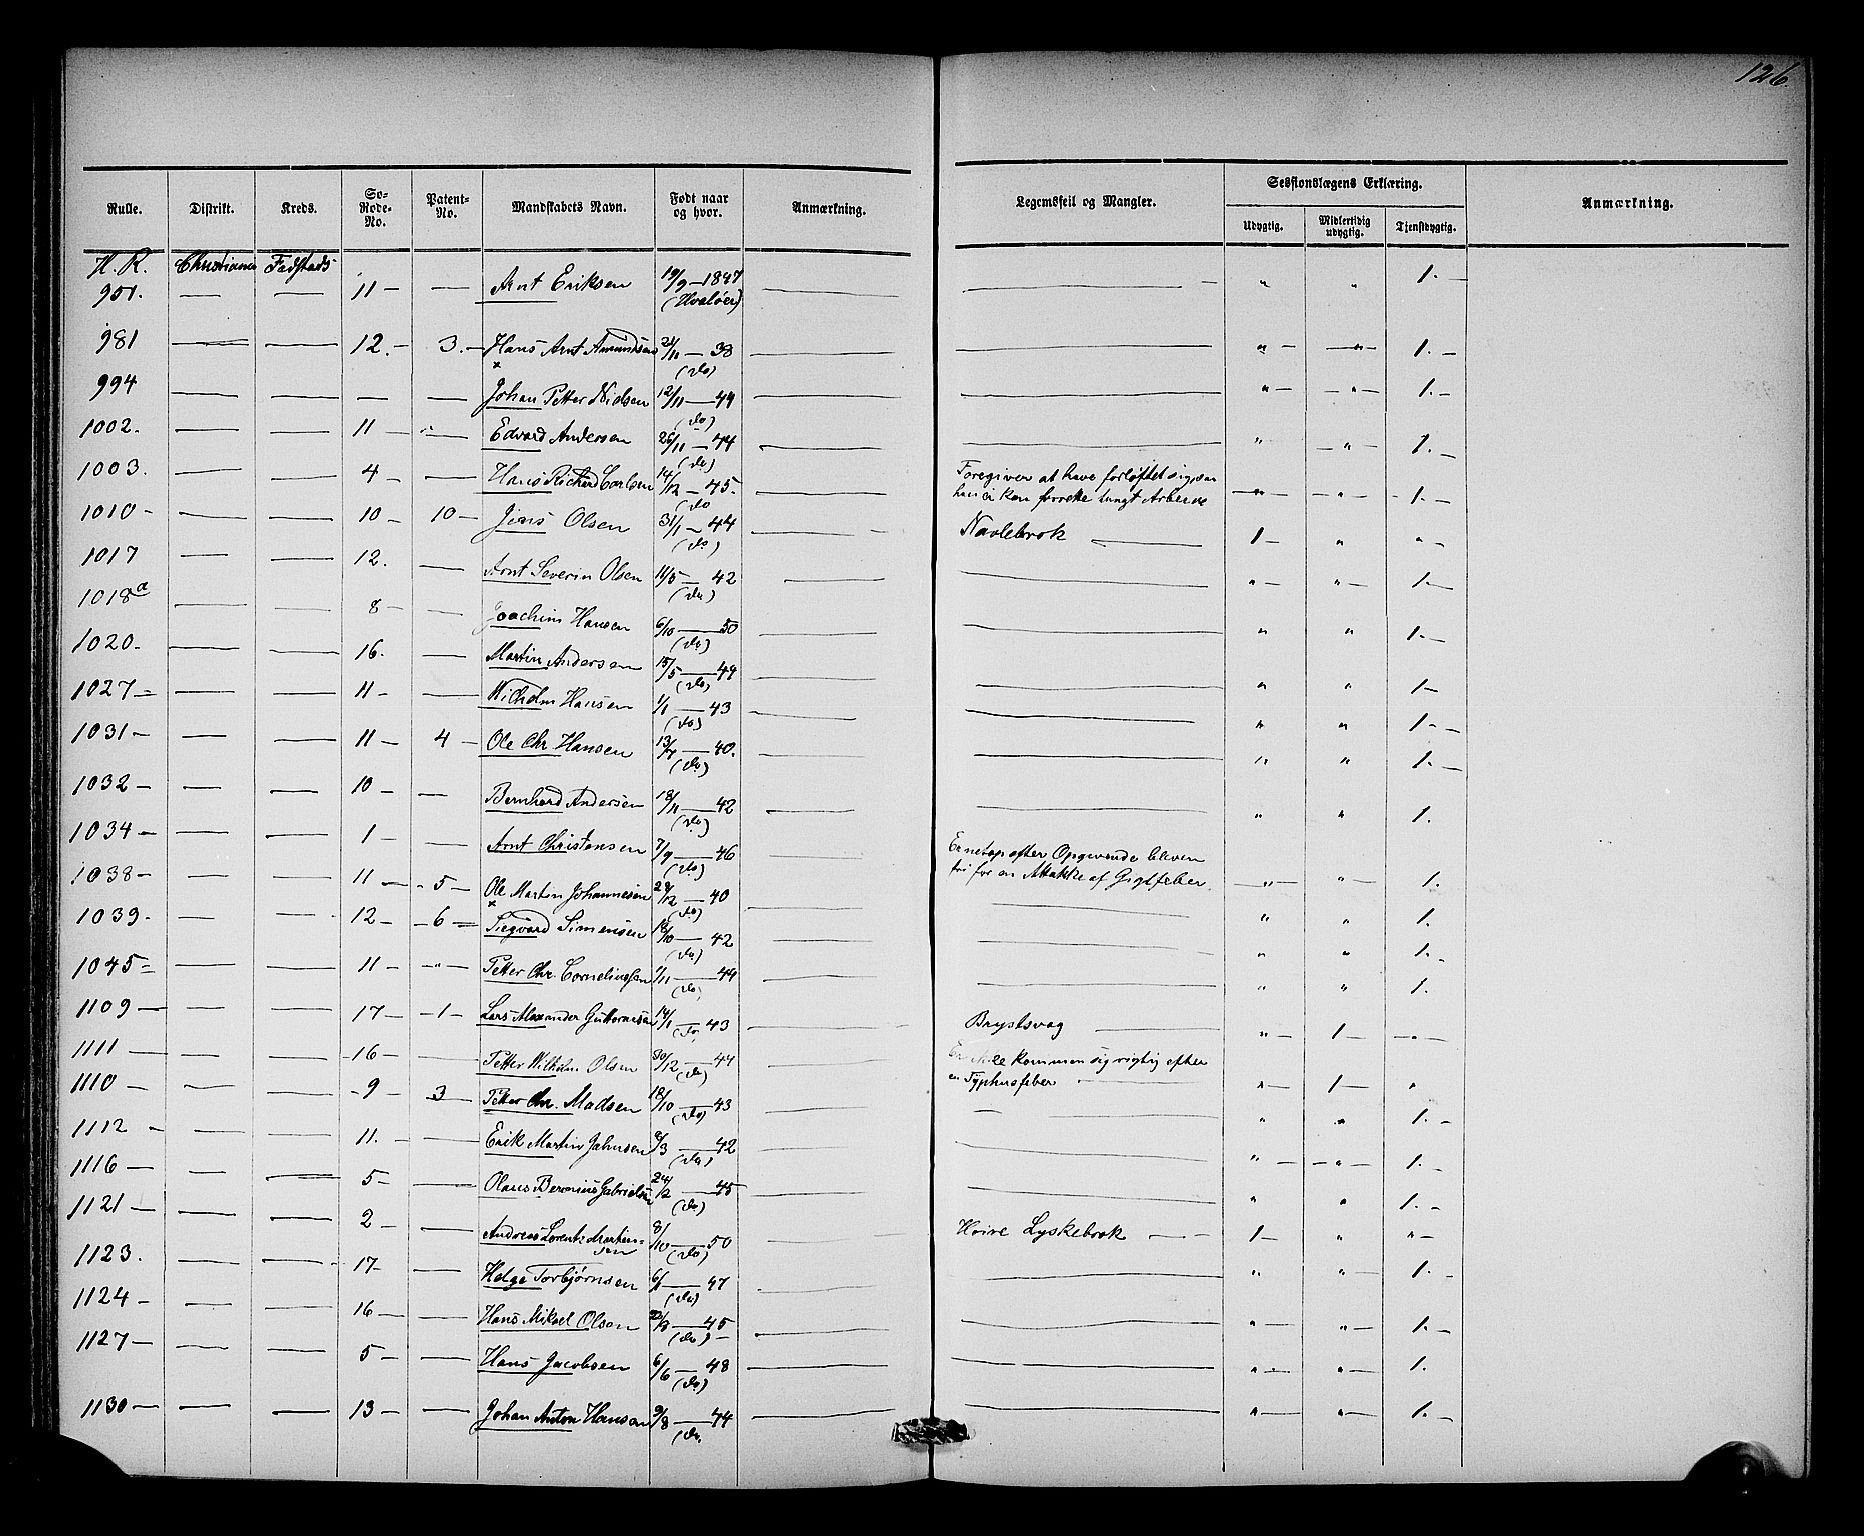 126.
Rulle. Distrikt. Kreds. So-Rode-No. Patent-No. Mandskabets Navn. Født naar og hvor. Anmærkning. Legemsfeil og Mangler. Sessionslægens Erklæring. Anmærkning.
Udygtig. Midlertidig udygtig. Tjenstdygtig.
H. R. Christiania Fredstads
951. — — 11 — — Arnt Eriksen 19/9 — 1847 (Hvaløer) — — " " 1. —
981 — — 12. — 3. — Hans Arnt Amundsen 21/11 — 38 (do) — — " — — " — 1. —
994 — — — — Johan Petter Nielsen 12/11 — 44 (do) — — " — — " — 1. —
1002. — — 11 — — Edvard Andersen 26/11 — 44 (do) — — " — " — 1. —
1003. — — 4 — — Hans Richard Carlsen 14/12 — 45. (do) Foregiver at have forløftet sig, saa
han ei kan forrette tungt Arbeide — " — — " — — 1. —
1010 — — — 10 — 10 — Jens Olsen 31/1 — 44 (do) — Navlebrok — 1 — " " —
1017 — — 12. — Arnt Severin Olsen 11/5 — 42 (do) — — " — " — 1. —
1018 a — — 8 — — Joachim Hansen 6/10 — 50 (do) — — " " 1. —
1020. — — 16. — Martin Andersen 15/5 — 49 (do) — — " " 1 —
1027 — — — 11 — — Wilhelm Hansen 1/1 — 43 (do) — — " " 1. —
1031 — — — 11 — 4 — Ole Chr. Hansen — 40. (do) — — " " 1. —
1032 — — — 10 — — Bernhard Andersen 18/11 — 42 (do) — — " " 1.
1034 — — — 1 — — Arnt Christensen 7/9 — 46 (do) Er netop efter Opgivende bleven
fri for en Attakke af Gigtfeber. — " — " 1.
1038 — — — 11 — — 5 — Ole Martin Johannesen 29/12 — 40 (do) — — " " 1.
1039. — — 12 — — 6 — Siegvard Simensen 18/10 — 42 (do) — — " " 1. —
1045 — — — 11 — — " — Petter Chr. Corneliussen /11 — 44 (do) — — " " 1.
1109 — — — 17 — — 1 — Lars Alexander Guttormsen 14/1 — 43 (do) — Brystsvag — " 1 — — " —
1111 — — — — 16 — — Petter Wilhelm Olsen 30/12 — 44 (do) Er ikke kommen sig rigtig efter
en Typhusfeber — " 1 — "
1110 — — — — 9 — 3 — Petter Chr. Madsen 18/10 — 43 (do) — — " " 1. —
1112 — — — 11. — — Erik Martin Jahnsen 8/3 — 42 (do) — — " — — " — 1. —
1116 — — — 5 — — Olaus Bernius Gabrielsen 24/2 — 45 (do) — — " " 1. —
1121 — — — 2 — — Andreas Lorents Martinsen 8/10 — 50 (do) — Høire Lyskebrok — — 1 — " " —
1123. — — 17 — — Helge Torbjørnsen 6/1 — 47 (do) — — " " 1. —
1124 — — — 16 — — Hans Mikael Olsen /8 — 45 (do) — — — " — " — 1. —
1127 — — — 5 — — Hans Jacobsen 6/6 — 48 (do) — — " — " — 1.
1130 — — — 13 — — Johan Anton Hansen 9/8 — 44 (do. — — " — " — 1. —